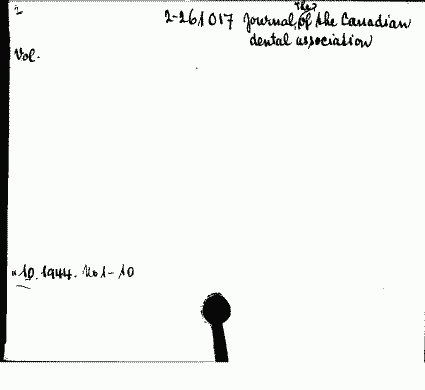 2
2-261017 Journal, (The) of the Canadian
dental association
Vol.
"10. 1944. No 1-10